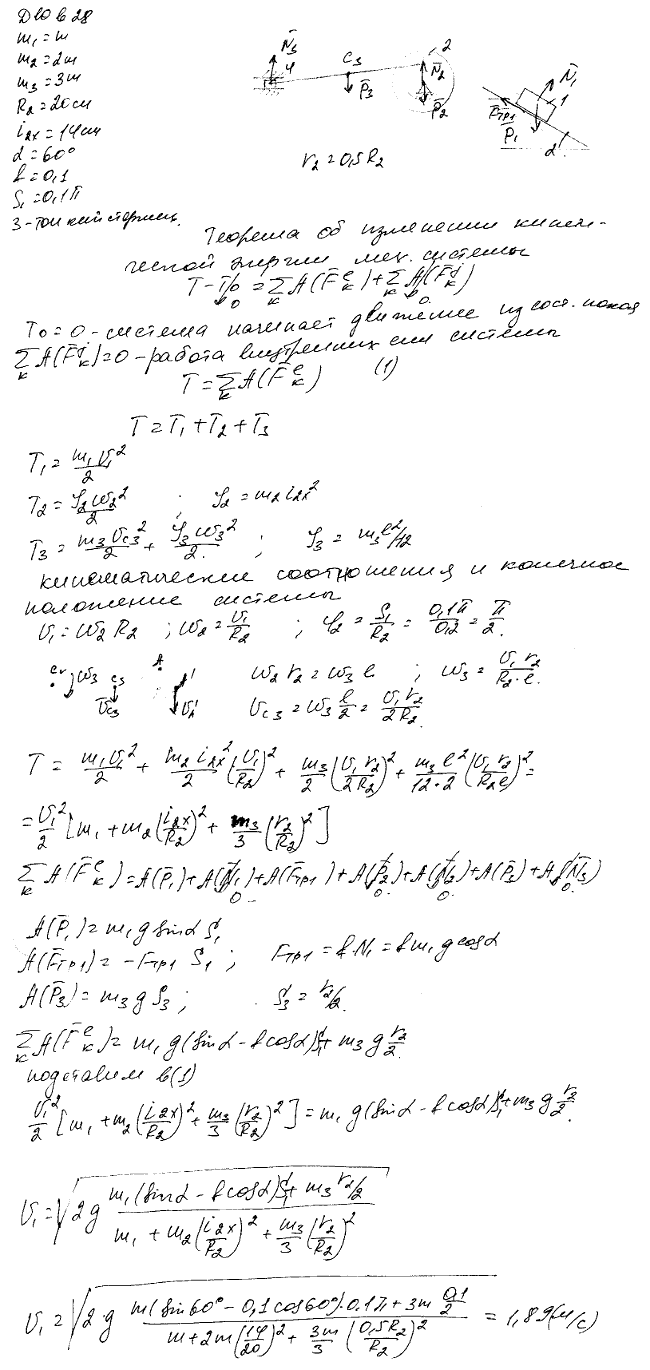 Д10 в 28
m₁ = m
m₂ = 2m
m₃ = 3m
R₂ = 20 см
i₂ₓ = 14 см
α = 60°
f = 0,1
S₁ = 0,1π
3 - тонкий стержень
N̄₃ C₃ 2
4 P̄₃ N̄₂ P̄₂ N̄₁ 1
F̄тр1 P̄₁ α
r₂ = 0,5R₂
Теорема об изменении кинети-
ческой энергии мех. системы
T - T₀ = Σ A(F̄ₖᵉ) + Σ A(F̄ₖʲ)
0 0
T₀ = 0 - система начинает движение из сост. покоя
Σ A(F̄ₖʲ) = 0 - работа внутренних сил системы
T = Σ A(F̄ₖᵉ) (1)
T = T₁ + T₂ + T₃
T₁ = m₁v₁²/2
T₂ = J₂ω₂²/2 ; J₂ = m₂i₂ₓ²
T₃ = m₃v_c₃²/2 + J₃ω₃²/2 ; J₃ = m₃l²/12
кинематические соотношения и конечное
положение системы
v₁ = ω₂R₂ ; ω₂ = v₁/R₂ ; φ₂ = S₁/R₂ = 0,1π/0,2 = π/2.
ω₃ c₃ v̄_c₃ A A' ω₂r₂ = ω₃l ; ω₃ = v₁r₂/(R₂·l).
v_c₃ = ω₃ l/2 = v₁r₂/(2R₂).
T = m₁v₁²/2 + m₂i₂ₓ²/2 (v₁/R₂)² + m₃/2 (v₁r₂/(2R₂))² + m₃l²/(12·2) (v₁r₂/(R₂l))² =
= v₁²/2 [m₁ + m₂(i₂ₓ/R₂)² + m₃/3 (r₂/R₂)²]
Σ A(F̄ₖᵉ) = A(P̄₁) + A(N̄₁) + A(F̄тр1) + A(P̄₂) + A(N̄₂) + A(P̄₃) + A(N̄₃)
0 0 0 0
A(P̄₁) = m₁g sinα S₁
A(F̄тр1) = -Fтр1 S₁ ; Fтр1 = fN₁ = fm₁g cosα
A(P̄₃) = m₃gS₃ ; S₃ = r₂/2.
Σ A(F̄ₖᵉ) = m₁g(sinα - f cosα)S₁ + m₃g r₂/2.
подставим в (1)
v₁²/2 [m₁ + m₂(i₂ₓ/R₂)² + m₃/3 (r₂/R₂)²] = m₁g(sinα - f cosα)S₁ + m₃g r₂/2.
v₁ = √(2g (m₁(sinα - f cosα)S₁ + m₃ r₂/2)/(m₁ + m₂(i₂ₓ/R₂)² + m₃/3 (r₂/R₂)²))
v₁ = √(2g (m(sin60° - 0,1cos60°)·0.1π + 3m 0,1/2)/(m + 2m(14/20)² + 3m/3 (0,5R₂/R₂)²)) = 1,89(м/с)